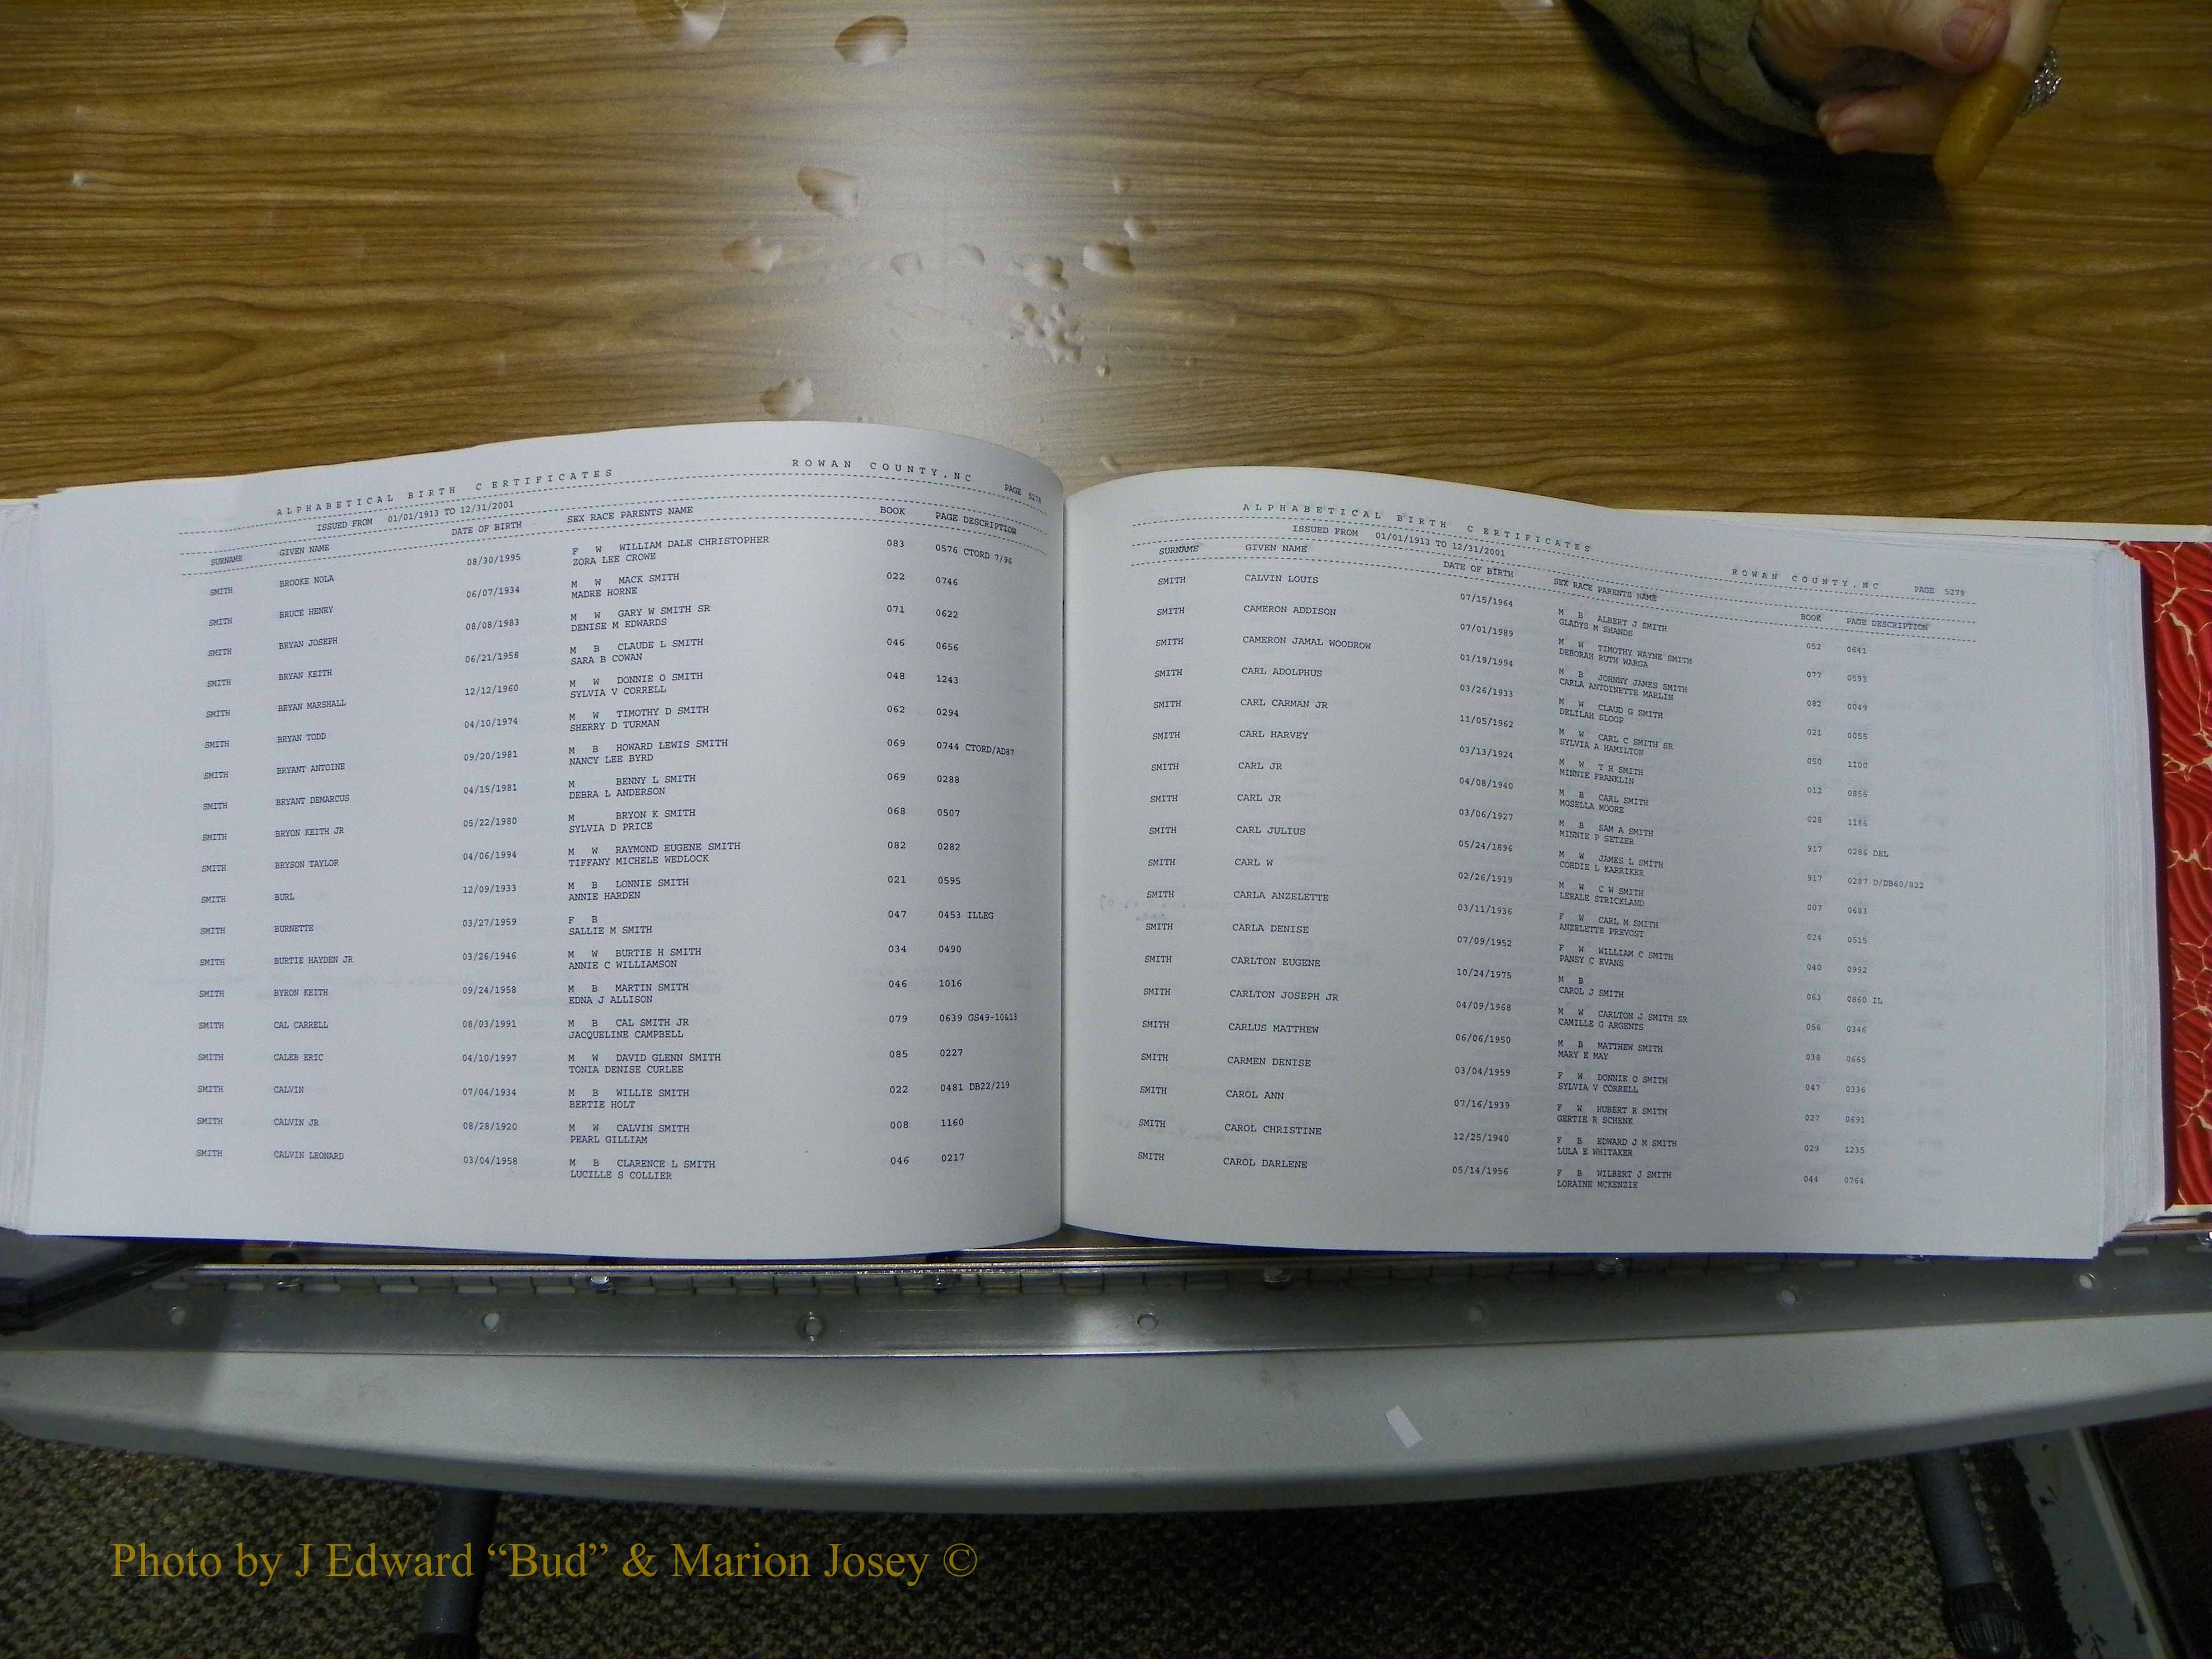 ALPHABETICAL BIRTH CERTIFICATES ROWAN COUNTY,NC PAGE 5278
ISSUED FROM 01/01/1913 TO 12/31/2001
SURNAME GIVEN NAME DATE OF BIRTH SEX RACE PARENTS NAME BOOK PAGE DESCRIPTION
SMITH BROOKE NOLA 08/30/1995 F W WILLIAM DALE CHRISTOPHER 083 0576 CTORD 7/96
ZORA LEE CROWE
SMITH BRUCE HENRY 06/07/1934 M W MACK SMITH 022 0746
MADRE HORNE
SMITH BRYAN JOSEPH 08/08/1983 M W GARY W SMITH SR 071 0622
DENISE M EDWARDS
SMITH BRYAN KEITH 06/21/1958 M B CLAUDE L SMITH 046 0656
SARA B COWAN
SMITH BRYAN MARSHALL 12/12/1960 M W DONNIE O SMITH 048 1243
SYLVIA V CORRELL
SMITH BRYAN TODD 04/10/1974 M W TIMOTHY D SMITH 062 0294
SHERRY D TURMAN
SMITH BRYANT ANTOINE 09/20/1981 M B HOWARD LEWIS SMITH 069 0744 CTORD/AD87
NANCY LEE BYRD
SMITH BRYANT DEMARCUS 04/15/1981 M BENNY L SMITH 069 0288
DEBRA L ANDERSON
SMITH BRYON KEITH JR 05/22/1980 M BRYON K SMITH 068 0507
SYLVIA D PRICE
SMITH BRYSON TAYLOR 04/06/1994 M W RAYMOND EUGENE SMITH 082 0282
TIFFANY MICHELE WEDLOCK
SMITH BURL 12/09/1933 M B LONNIE SMITH 021 0595
ANNIE HARDEN
SMITH BURNETTE 03/27/1959 F B 047 0453 ILLEG
SALLIE M SMITH
SMITH BURTIE HAYDEN JR 03/26/1946 M W BURTIE H SMITH 034 0490
ANNIE C WILLIAMSON
SMITH BYRON KEITH 09/24/1958 M B MARTIN SMITH 046 1016
EDNA J ALLISON
SMITH CAL CARRELL 08/03/1991 M B CAL SMITH JR 079 0639 GS49-10&13
JACQUELINE CAMPBELL
SMITH CALEB ERIC 04/10/1997 M W DAVID GLENN SMITH 085 0227
TONIA DENISE CURLEE
SMITH CALVIN 07/04/1934 M B WILLIE SMITH 022 0481 DB22/219
BERTIE HOLT
SMITH CALVIN JR 08/28/1920 M W CALVIN SMITH 008 1160
PEARL GILLIAM
SMITH CALVIN LEONARD 03/04/1958 M B CLARENCE L SMITH 046 0217
LUCILLE S COLLIER
ALPHABETICAL BIRTH CERTIFICATES ROWAN COUNTY,NC PAGE 5279
ISSUED FROM 01/01/1913 TO 12/31/2001
SURNAME GIVEN NAME DATE OF BIRTH SEX RACE PARENTS NAME BOOK PAGE DESCRIPTION
SMITH CALVIN LOUIS 07/15/1964 M B ALBERT J SMITH 052 0641
GLADYS M SHANDS
SMITH CAMERON ADDISON 07/01/1989 M W TIMOTHY WAYNE SMITH 077 0593
DEBORAH RUTH WARGA
SMITH CAMERON JAMAL WOODROW 01/19/1994 M B JOHNNY JAMES SMITH 082 0049
CARLA ANTOINETTE MARLIN
SMITH CARL ADOLPHUS 03/26/1933 M W CLAUD G SMITH 021 0055
DELILAH SLOOP
SMITH CARL CARMAN JR 11/05/1962 M W CARL C SMITH SR 050 1100
SYLVIA A HAMILTON
SMITH CARL HARVEY 03/13/1924 M W T H SMITH 012 0856
MINNIE FRANKLIN
SMITH CARL JR 04/08/1940 M B CARL SMITH 028 1186
MOSELLA MOORE
SMITH CARL JR 03/06/1927 M B SAM A SMITH 917 0286 DEL
MINNIE P SETZER
SMITH CARL JULIUS 05/24/1896 M W JAMES L SMITH 917 0287 D/DB60/822
CORDIE L KARRIKER
SMITH CARL W 02/26/1919 M W C W SMITH 007 0683
LERALE STRICKLAND
SMITH CARLA ANZELETTE 03/11/1936 F W CARL M SMITH 024 0515
ANZELETTE PREVOST
SMITH CARLA DENISE 07/09/1952 F W WILLIAM C SMITH 040 0992
PANSY C EVANS
SMITH CARLTON EUGENE 10/24/1975 M B 063 0860 IL
CAROL J SMITH
SMITH CARLTON JOSEPH JR 04/09/1968 M W CARLTON J SMITH SR 056 0346
CAMILLE G ARGENTS
SMITH CARLUS MATTHEW 06/06/1950 M B MATTHEW SMITH 038 0665
MARY E MAY
SMITH CARMEN DENISE 03/04/1959 F W DONNIE O SMITH 047 0336
SYLVIA V CORRELL
SMITH CAROL ANN 07/16/1939 F W HUBERT R SMITH 027 0691
GERTIE R SCHENK
SMITH CAROL CHRISTINE 12/25/1940 F B EDWARD J M SMITH 029 1235
LULA E WHITAKER
SMITH CAROL DARLENE 05/14/1956 F B WILBERT J SMITH 044 0764
LORAINE MCKENZIE
Photo by J Edward “Bud” & Marion Josey ©